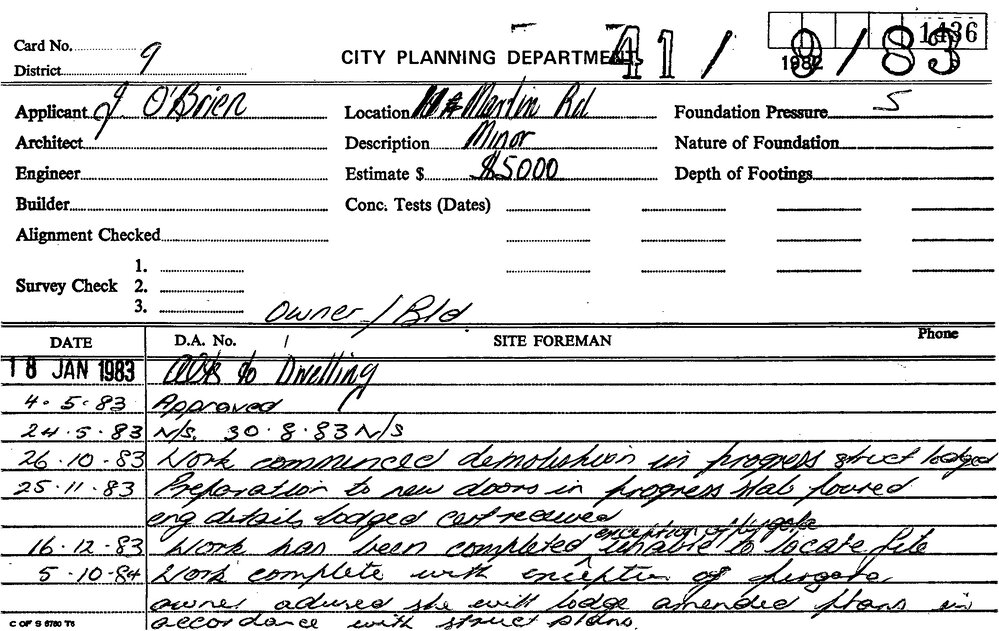 Card No.
District 9
CITY PLANNING DEPARTMENT
41 / 9 / 83
1436
1982
Applicant J O'Brien
Location Martin Rd
Foundation Pressure 5
Architect
Description Minor
Nature of Foundation
Engineer
Estimate $ $5000
Depth of Footings
Builder
Conc. Tests (Dates)
Alignment Checked
Survey Check
1.
2.
3.
Owner / Bld
DATE D.A. No. / SITE FOREMAN Phone
18 JAN 1983 to Dwelling
4.5.83 Approved
24.5.83 N/S. 30.8.83 N/S
26.10.83 Work commenced demolishion in progress struct lodged
25.11.83 Preparation to new doors in progress slab poured
eng details lodged cert received
exception of pergola
16.12.83 Work has been completed unable to locate file
5.10.84 Work complete with exception of pergola
owner advised she will lodge amended plans in
accordance with struct plans.
C OF S 6760 T6